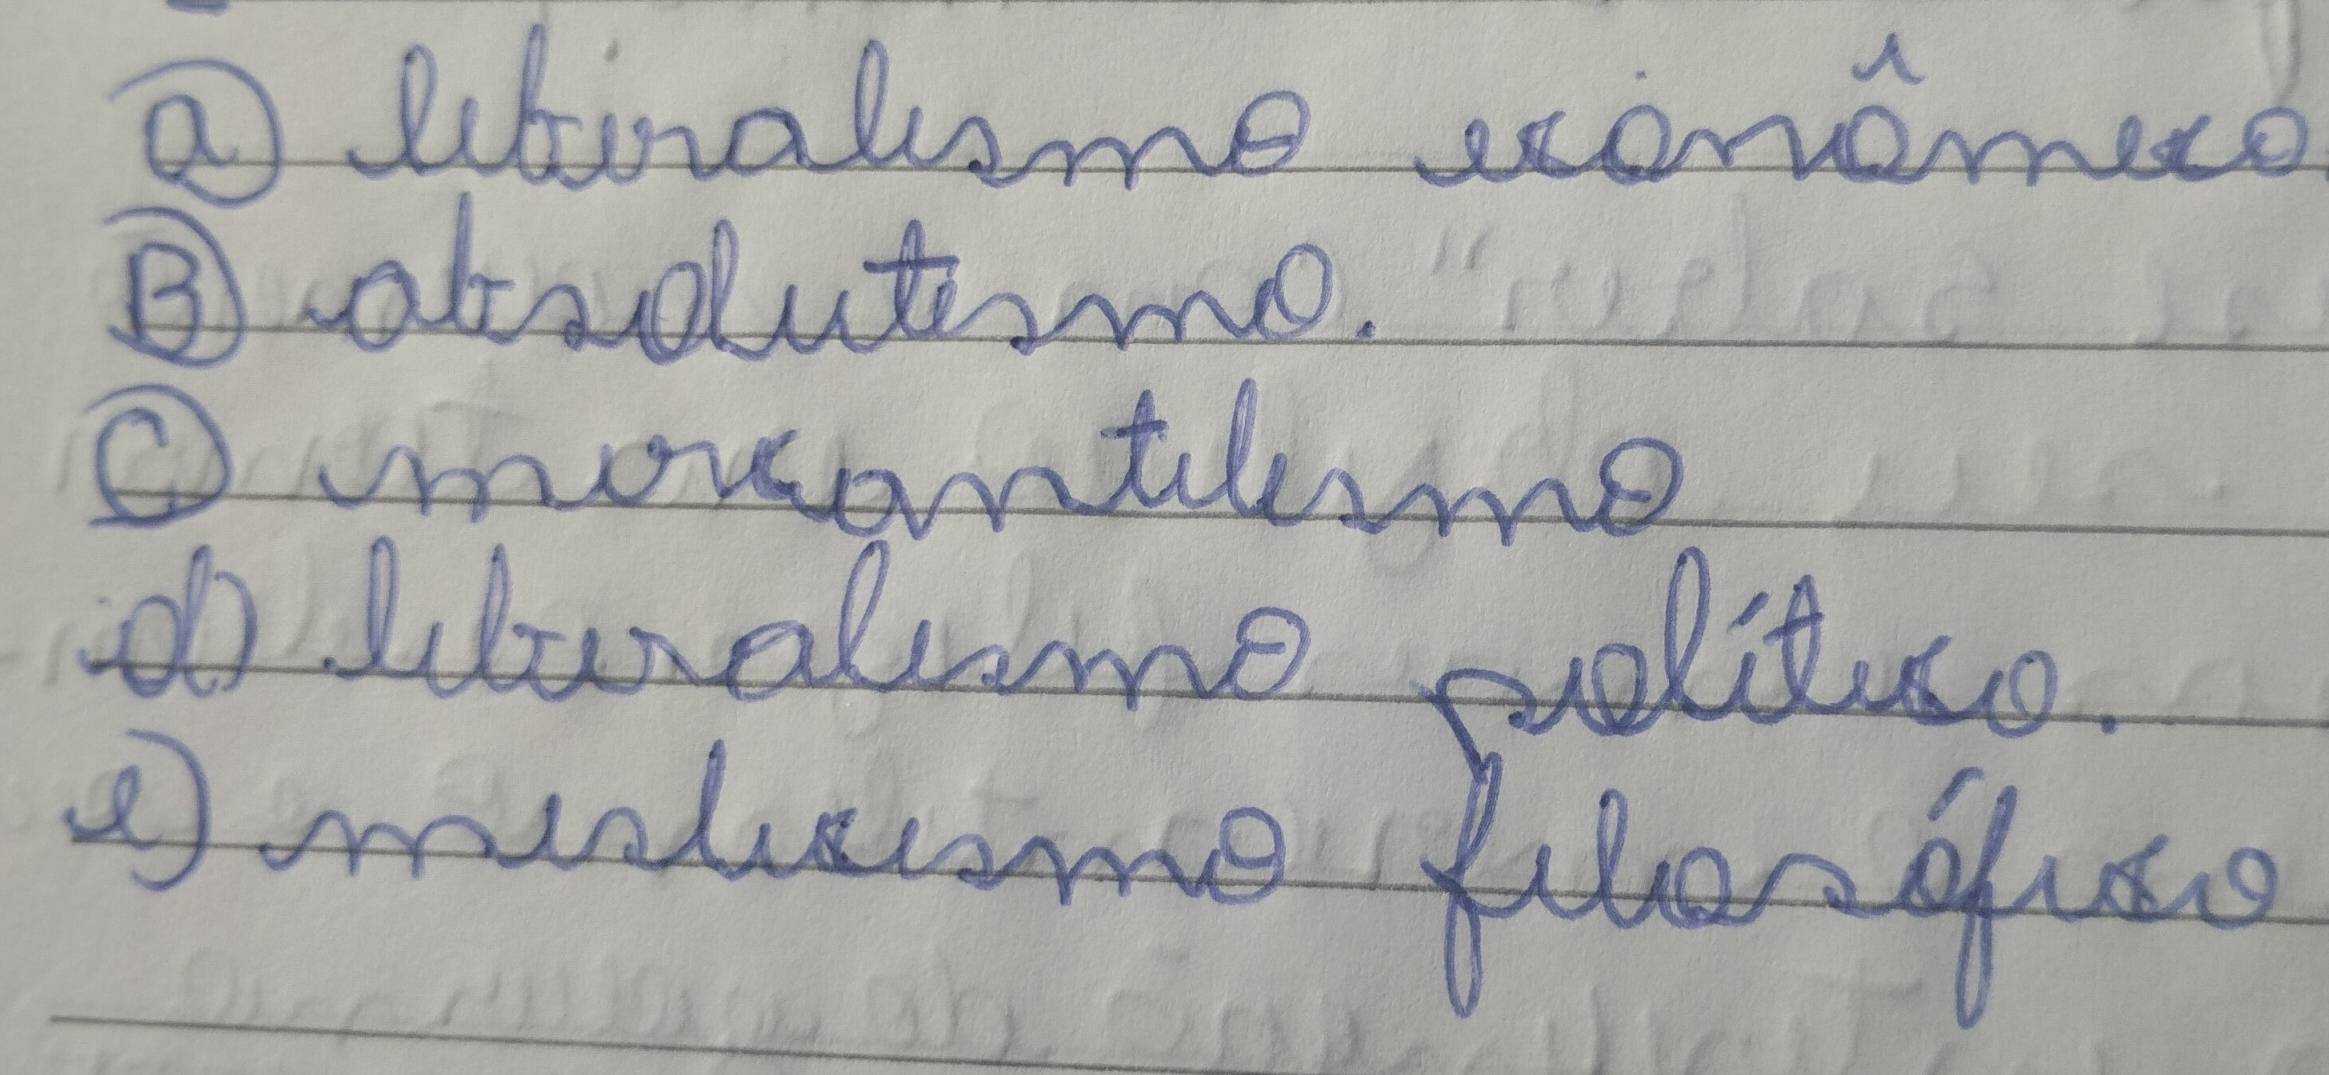 a) liberalismo econômico.
B) absolutismo.
C) mercantilismo
d) liberalismo político.
e) misticismo filosófico